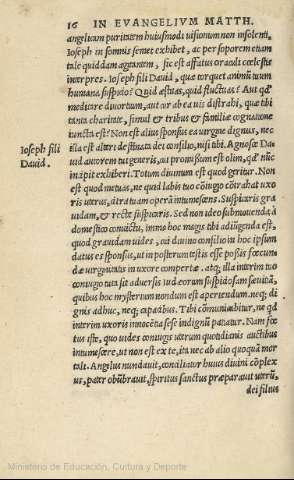 16 IN EVANGELIVM MATTH.
angelicam puritatem huiusmodi uisionum non insolenti,
Ioseph in somnis semet exhibet, ac per soporem etiam
tale quiddam agitantem, sic est affatus oraculi cœlestis
interpres. Ioseph fili Dauid, quæ torquet animũ tuum
humana suspicio? Quid æstuas, quid fluctuas? Aut qd
meditare diuortium, aut ab ea uis distrahi, quæ tibi
tanta charitate, simul & tribus & familiæ cognatione
iuncta est? Non est alius sponsus ea uirgine dignus, nec
illa est alteri destinata dei consilio, nisi tibi. Agnosce Da-
Ioseph fili
Dauid.
uid autorem tui generis, cui promissum est olim, qd nũc
incipit exhiberi. Totum diuinum est quod geritur. Non
est quod metuas, ne quid labis tuo cõiugio cõtrahat uxo
ris uterus, citra tuam opera intumescens. Suspicaris gra
uidam, & recte suspicaris. Sed non ideo submouenda, à
domestico conuictu, immo hoc magis tibi adiũgenda est,
quod grauidam uides, cui diuino consilio in hoc ipsum
datus es sponsus, ut in posterum testis esse possis fœcun
dæ uirginitatis in uxore compertæ. atq; illa interim tuo
coniugio tuta sit aduersus iudæorum suspicosam sæuitiã,
quibus hoc mysterium nondum est aperiendum. neq; di
gnis adhuc, neq; capacibus. Tibi cõmunicabitur, ne qd
interim uxoris innocẽtia sese indignũ patiatur. Nam fœ
tus iste, quo uides coniugis uterum quotidianis auctibus
intumescere, ut non est ex te, ita nec ab alio quoquã mor
tali. Angelus nunciauit, conciliator huius diuini cõplex
us, pater obũbrauit, spiritus sanctus præparauit uterũ,
dei filius
Ministerio de Educación, Cultura y Deporte